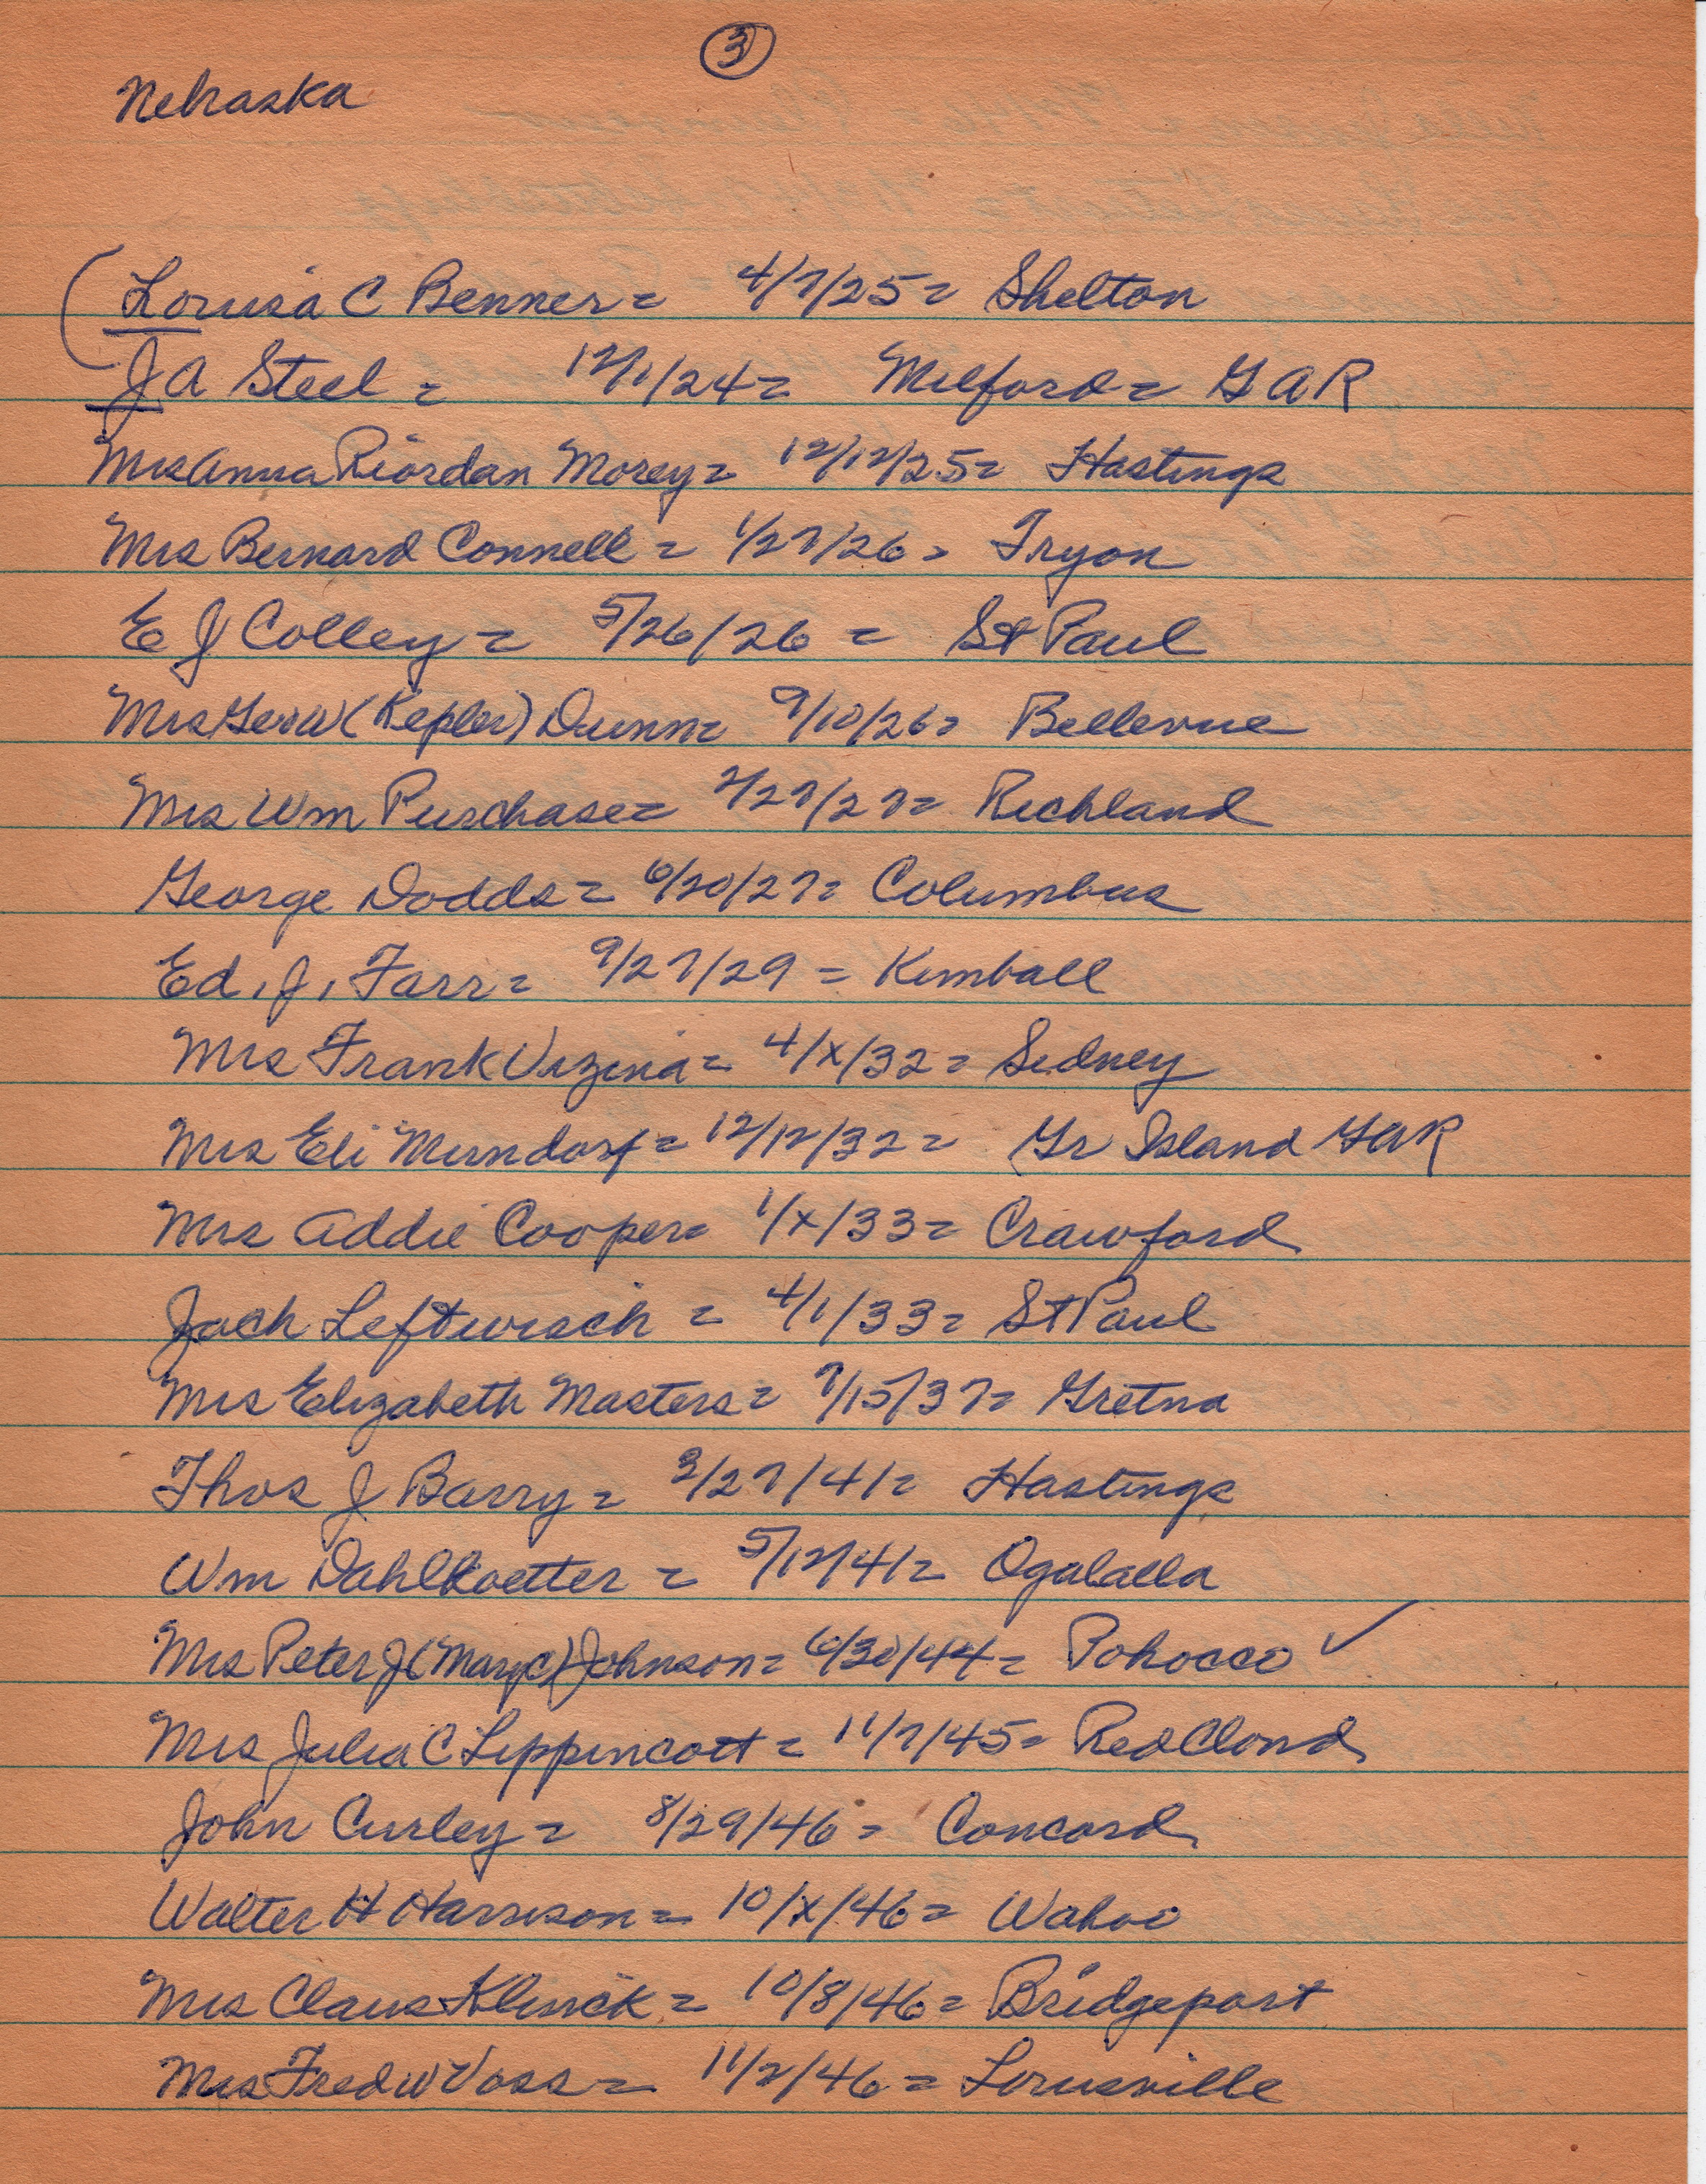 3
Nebraska
Louisa C Benner = 4/7/25 = Shelton
J A Steel = 12/1/24 = Milford = G A R
Mrs Anna Riordan Morey = 12/12/25 = Hastings
Mrs Bernard Connell = 1/27/26 = Tryon
E J Colley = 5/26/26 = St Paul
Mrs Geo W (Kepler) Dunn = 9/10/26 = Bellevue
Mrs Wm Purchase = 2/27/27 = Richland
George Dodds = 6/20/27 = Columbus
Ed. J. Farr = 9/27/29 = Kimball
Mrs Frank Vizina = 4/x/32 = Sidney
Mrs Eli Mundorf = 12/12/32 = Gr Island GAR
Mrs Addie Cooper = 1/x/33 = Crawford
Jach Leftwich = 4/1/33 = St Paul
Mrs Elizabeth Masters = 7/15/37 = Gretna
Thos J Barry = 3/27/41 = Hastings
Wm Dahlkoetter = 5/12/41 = Ogalalla
Mrs Peter J (Mary C) Johnson = 6/30/44 = Pohocco ✓
Mrs Julia C Lippincott = 11/7/45 = Red Cloud
John Curley = 8/29/46 = Concord
Walter H Harrison = 10/x/46 = Wahoo
Mrs Claus Klinck = 10/8/46 = Bridgeport
Mrs Fred W Voss = 11/2/46 = Louisville